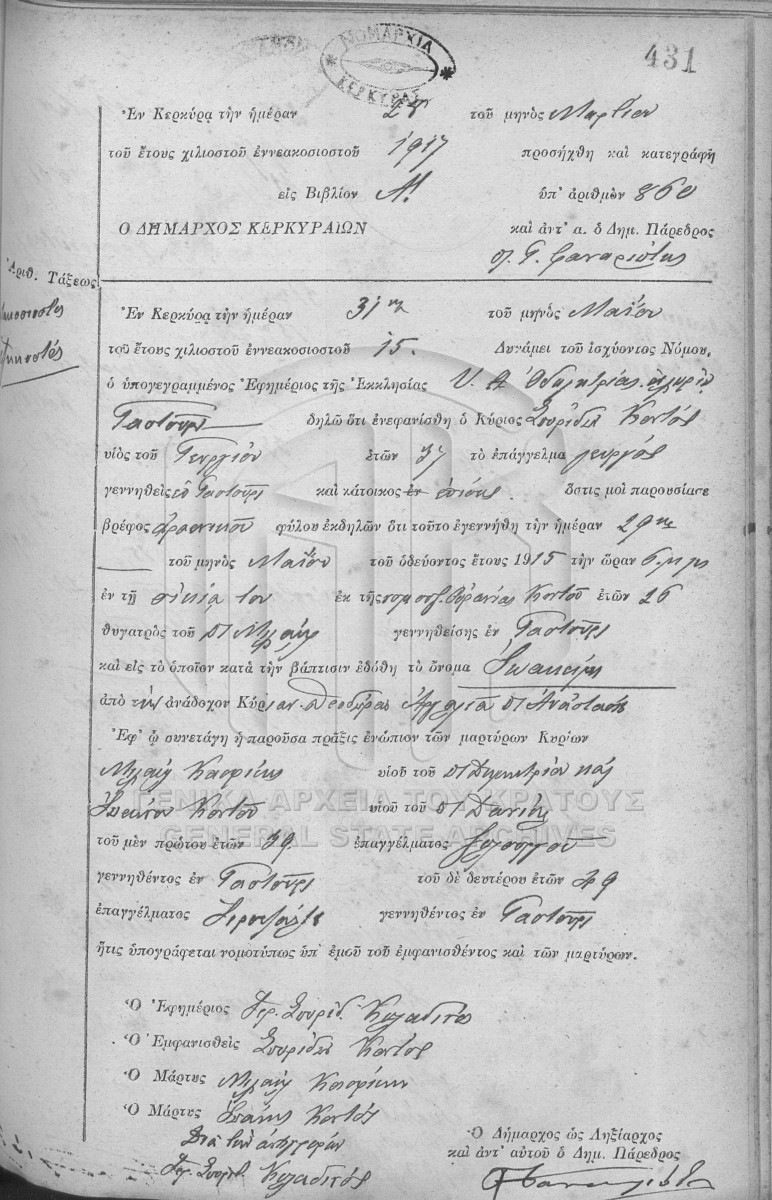 ΝΟΜΑΡΧΙΑ
ΚΕΡΚΥΡΑΣ
431
Ἐν Κερκύρᾳ τὴν ἡμέραν 28 τοῦ μηνὸς Μαρτίου
τοῦ ἔτους χιλιοστοῦ ἐννεακοσιοστοῦ 1917 προσήχθη καὶ κατεγράφη
εἰς Βιβλίον Α! ὑπ' ἀριθμὸν 860
Ο ΔΗΜΑΡΧΟΣ ΚΕΡΚΥΡΑΙΩΝ καὶ ἀντ' α. ὁ Δημ. Πάρεδρος
Γ. Φαναριώτης
Ἀριθ. Τάξεως
Ἐν Κερκύρᾳ τὴν ἡμέραν 31ην τοῦ μηνὸς Μαΐου
τοῦ ἔτους χιλιοστοῦ ἐννεακοσιοστοῦ 15. Δυνάμει τοῦ ἰσχύοντος Νόμου,
ὁ ὑπογεγραμμένος Ἐφημέριος τῆς Ἐκκλησίας Υ. Θ. Ὁδηγητρίας
Γαστούρι δηλῶ ὅτι ἐνεφανίσθη ὁ Κύριος Σπυρίδων Κοντὸς
υἱὸς τοῦ Γεωργίου ἐτῶν 37 τὸ ἐπάγγελμα γεωργὸς
γεννηθεὶς ἐν Γαστούρι καὶ κάτοικος ἐν ἐπίσης. ὅστις μοὶ παρουσίασε
βρέφος ἀρσενικοῦ φύλου ἐκδηλῶν ὅτι τοῦτο ἐγεννήθη τὴν ἡμέραν 29ην
τοῦ μηνὸς Μαΐου τοῦ ὁδεύοντος ἔτους 1915 τὴν ὥραν 6 μ.μ.
ἐν τῇ οἰκίᾳ του ἐκ τῆς νομ. συζ. Οὐρανίας Κοντοῦ ἐτῶν 26
θυγατρὸς τοῦ Μιχαὴλ γεννηθείσης ἐν Γαστούρι
καὶ εἰς τὸ ὁποῖον κατὰ τὴν βάπτισιν ἐδόθη τὸ ὄνομα Ἰωακείμ
ἀπὸ τὴν ἀνάδοχον Κύριαν Θεοδώρα Ἀναστάση
Ἐφ' ᾧ συνετάγη ἡ παροῦσα πρᾶξις ἐνώπιον τῶν μαρτύρων Κυρίων
Μιχαὴλ υἱοῦ τοῦ Δημητρίου καὶ
Ἰωάννου Κοντοῦ υἱοῦ τοῦ
ΓΕΝΙΚΑ ΑΡΧΕΙΑ ΤΟΥ ΚΡΑΤΟΥΣ
GENERAL STATE ARCHIVES
τοῦ μὲν πρώτου ἐτῶν 39 ἐπαγγέλματος ξυλουργοῦ
γεννηθέντος ἐν Γαστούρι τοῦ δὲ δευτέρου ἐτῶν 49
ἐπαγγέλματος ἱεροψάλτου γεννηθέντος ἐν Γαστούρι
ἥτις ὑπογράφεται νομοτύπως ὑπ' ἐμοῦ τοῦ ἐμφανισθέντος καὶ τῶν μαρτύρων.
Ὁ Ἐφημέριος Ἱερ. Σπυρίδ.
Ὁ Ἐμφανισθεὶς Σπυρίδων Κοντὸς
Ὁ Μάρτυς Μιχαὴλ
Ὁ Μάρτυς Ἰωάννης Κοντὸς
Διὰ τὴν ἀντιγραφὴν
Ἱερ. Σπυρίδ.
Ὁ Δήμαρχος ὡς Ληξίαρχος
καὶ ἀντ' αὐτοῦ ὁ Δημ. Πάρεδρος